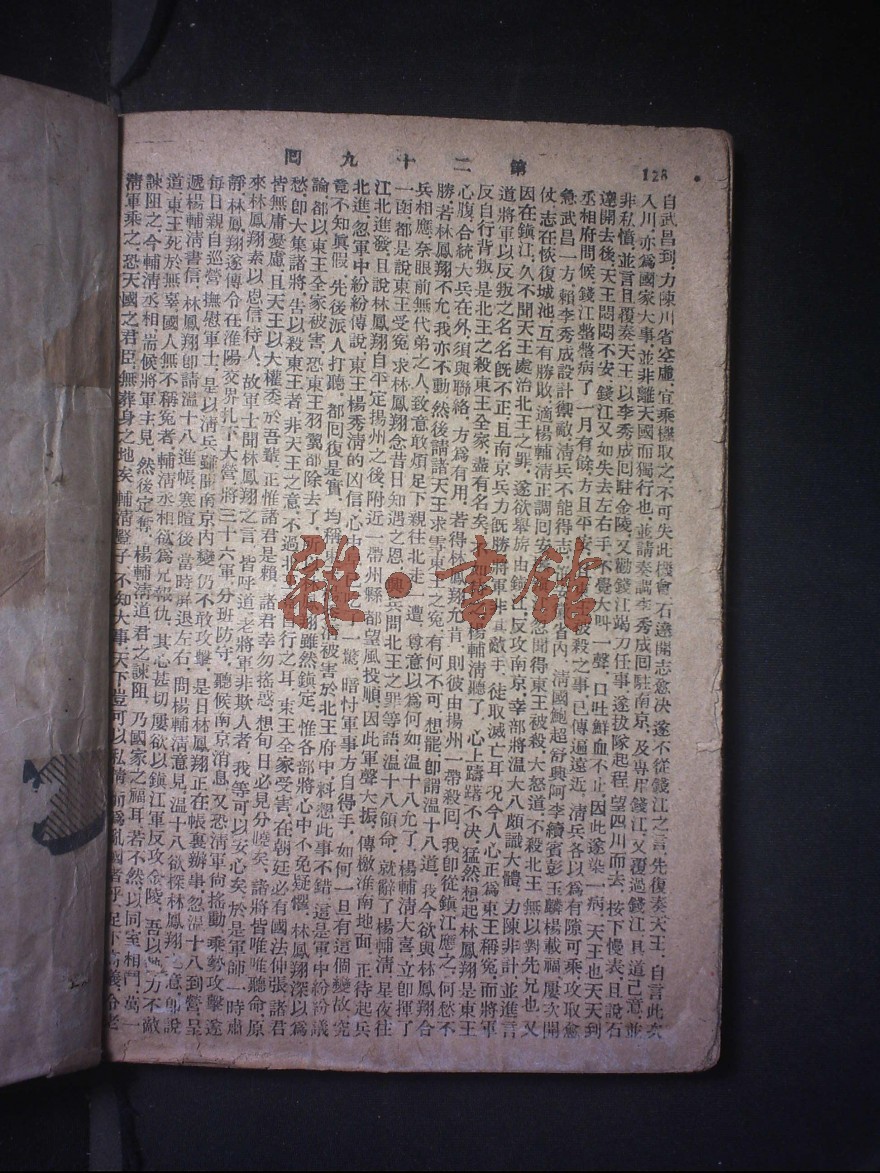 第二十九回
128
自武昌到、力陳川省空虛、宜乘機取之、不可失此機會、石達開志愈決、遂不從錢江之言、先復奏天王、自言此次
入川、亦爲國家大事、並非離天國而獨行也、並請奏調李秀成囘駐南京、及專庫錢江、又覆過錢江、具道已意、並
非私憤、並言且覆奏天王、以李秀成囘駐金陵、又勸錢江竭力任事、遂拔隊起程、望四川而去、按下慢表、且說石
達開去後、天王悶悶不安、錢江又如失去左右手、不覺大叫一聲、口吐鮮血不止、因此遂染一病、天王也天天到
丞相府問候、錢江整整病了一月有餘、方且平安
急武昌一方、賴李秀成設計禦敵、清兵不能得志、省內、清國鮑超舒興阿李續賓彭玉麟楊載福、屢次開
仗、志在恢復城池、互有勝敗、適楊輔清正調囘安 忽聞得東王被殺、大怒道、不殺北王、無以對先兄也、又
因在鎭江、久不聞天王處治北王之罪、遂欲舉旂由鎭江、反攻南京、幸部將溫大八頗識大體、力陳非計、並進言
道、將軍以反叛之名、名旣不正、且南京兵力旣勝、將軍非其敵手、徒取滅亡耳、況今人心正爲東王稱冤、而將軍
反自行背叛、是北王之殺東王全家、盡有名矣、 楊輔清聽了、心上躊躇不決、猛然想起林鳳翔是東王
心腹、合統大兵在外、須與聯絡、方爲有用、若得林鳳翔允肯、則彼由揚州一帶殺囘、我卽從鎭江應之、何愁不
勝、若林鳳翔不允、我亦不動、然後請諸天王求雪東王之冤、有何不可、想罷卽謂溫十八道、我今欲與林鳳翔合
兵相應、奈眼前無代弟之人、致意敢煩足下親往北走一遭、尊意以爲何如、溫十八允了、楊輔清大喜、立卽揮了
一函、都是說東王受冤、求林鳳翔念昔日知遇之恩、興兵問北王之罪等語、溫十八領命、就辭了楊輔清、星夜往
江北進發、且說林鳳翔自平定揚州之後、附近一帶州縣、都望風投順、因此軍聲大振、傳檄淮南地面、正待起兵
北進、忽軍中紛紛傳說、東王楊秀清的凶信、心中 一驚、暗忖軍事方自得手、如何一旦有這個變故、究
竟不知眞假、先後派人打聽、都囘復是實、均稱東 清被害於北王府中、料想此事不錯、這是軍中紛紛議
論、都以東王全家被害、恐東王羽翼都除去了、所 雖然鎭定、惟各部將心中不免疑懼、林鳳翔深以爲
愁、卽大集諸將、告以殺東王者、非天王之意、不過北 行之耳、東王全家受害、在朝廷必有國法伸張、諸君
皆無庸憂慮、且天王以大權委於吾輩、正惟諸君是賴、諸君幸勿搖惑、想旬日必見分曉矣、諸將皆唯唯聽命、原
來林鳳翔素以恩信待人、故軍士聞林鳳翔之言、皆呼道、老將軍非欺人者、我等可以安心矣、於是軍師一時肅
靜、林鳳翔遂傳令在淮陽交界、扎下大營、將三十六軍、分班防守、聽候南京消息、又恐清軍尙搖動、乘勢攻擊、遂
每日親自巡營、撫慰軍士、是以清兵雖聞南京內變、仍不敢攻擊、是日林鳳翔正在帳裏辦事、忽溫十八到營、呈
遞楊輔清書信、林鳳翔卽請溫十八進帳、寒暄後、當時屛退左右、問楊輔清意見、溫十八欲探林鳳翔之意、卽說
道、東王死於無辜、國人無不稱冤者、輔清丞相、欲爲兄報仇、其心甚切、屢欲以鎭江軍反攻金陵、吾以 力不敵
諫阻之、今輔清丞相、耑候將軍主見、然後定奪、楊輔清道、君之諫阻、乃國家之福耳、若不然、以同室相鬥、萬一
清軍乘之、恐天國之君臣、無葬身之地矣、輔清豎子、不知大事、天下豈可以私情而爲亂國者乎、足下高義、令老
雜·書館